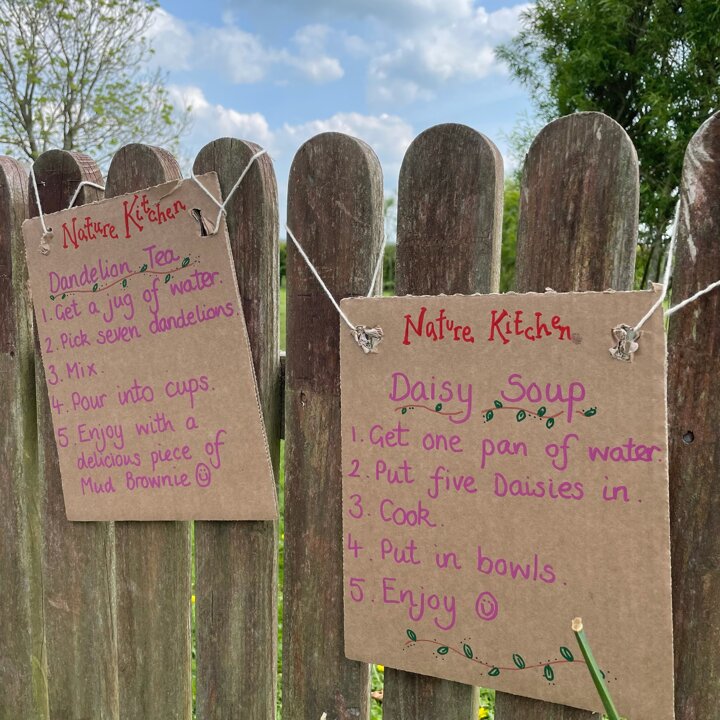 Nature Kitchen
Dandelion Tea
1. Get a jug of water.
2. Pick seven dandelions.
3. Mix.
4. Pour into cups.
5. Enjoy with a
delicious piece of
Mud Brownie
Nature Kitchen
Daisy Soup
1. Get one pan of water.
2. Put five Daisies in.
3. Cook.
4. Put in bowls.
5. Enjoy